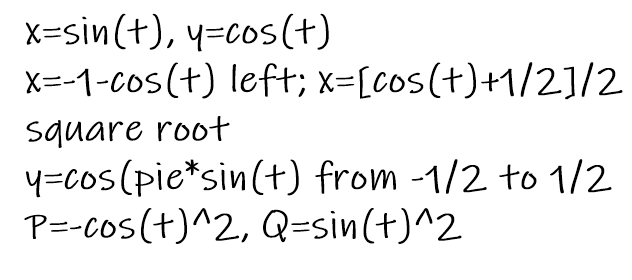 x=sin(t), y=cos(t)
x=-1-cos(t) left; x=[cos(t)+1/2]/2
square root
y=cos(pie*sin(t) from -1/2 to 1/2
P=-cos(t)^2, Q=sin(t)^2